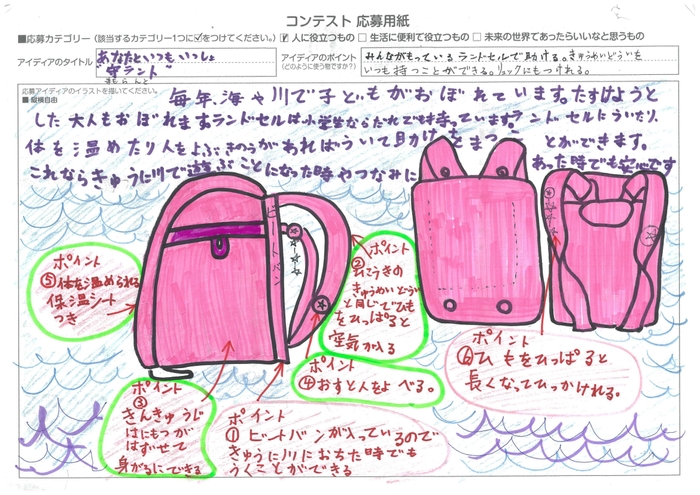 コンテスト 応募用紙
■応募カテゴリー（該当するカテゴリー1つに☑をつけてください。） ☑ 人に役立つもの □ 生活に便利で役立つもの □ 未来の世界であったらいいなと思うもの
アイディアのタイトル
あなたといつもいっしょ
"守ラント"
まもらんと
アイディアのポイント
（どのように使う物ですか？）
みんながもっているランドセルで助ける。きゅうめいどういを
いつも持つことができる。リュックにもつけれる。
応募アイディアのイラストを描いてください。
■ 縦横自由
毎年、海や川で子どもがおぼれています。たすけようと
した大人もおぼれます。ランドセルは小学生ならだれでも持っています。ランドセルトういたり、
体を温めたり人をよぶきのうがあればういて助けをまつことができます。
これならきゅうに川で遊ぶことになった時やつなみにあった時でも安心です
ビート バン
ポイント
⑤体を温められる
保温シート
つき
ポイント
②
ひこうきの
きゅうめいどうい
と同じでひも
をひっぱると
空気が入る
ポイント
④おすと人をよべる。
ポイント
③
きんきゅうじ
はにもつが
はずせて
身がるにできる
ポイント
①ビートバンが入っているので
きゅうに川におちた時でも
うくことができる
ポイント
⑥ひもをひっぱると
長くなってひっかけれる。